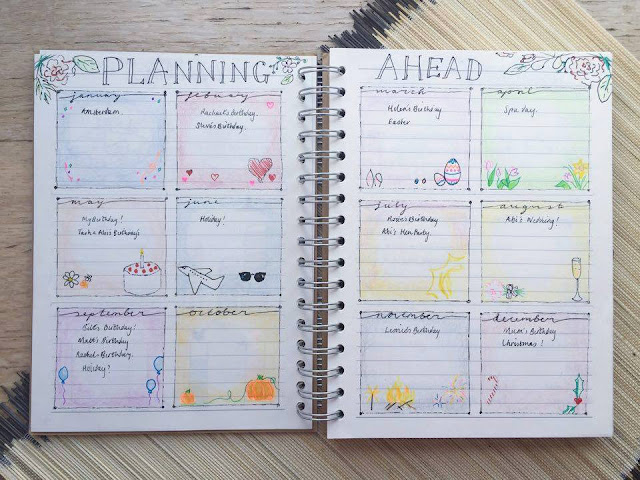 PLANNING AHEAD
january
Amsterdam.
febuary
Rachael's Birthday.
Steve's Birthday.
march
Helen's Birthday
Easter
april
Spa day.
may
My Birthday!
Tash & Alex's Birthdays
june
Holiday!
july
Rosie's Birthday
Abi's Hen Party.
august
Abi's Wedding!
september
Birthday!
Matt's Birthday
Rachel Birthday.
Holiday?
october
november
Birthday
december
Mum's Birthday
Christmas!